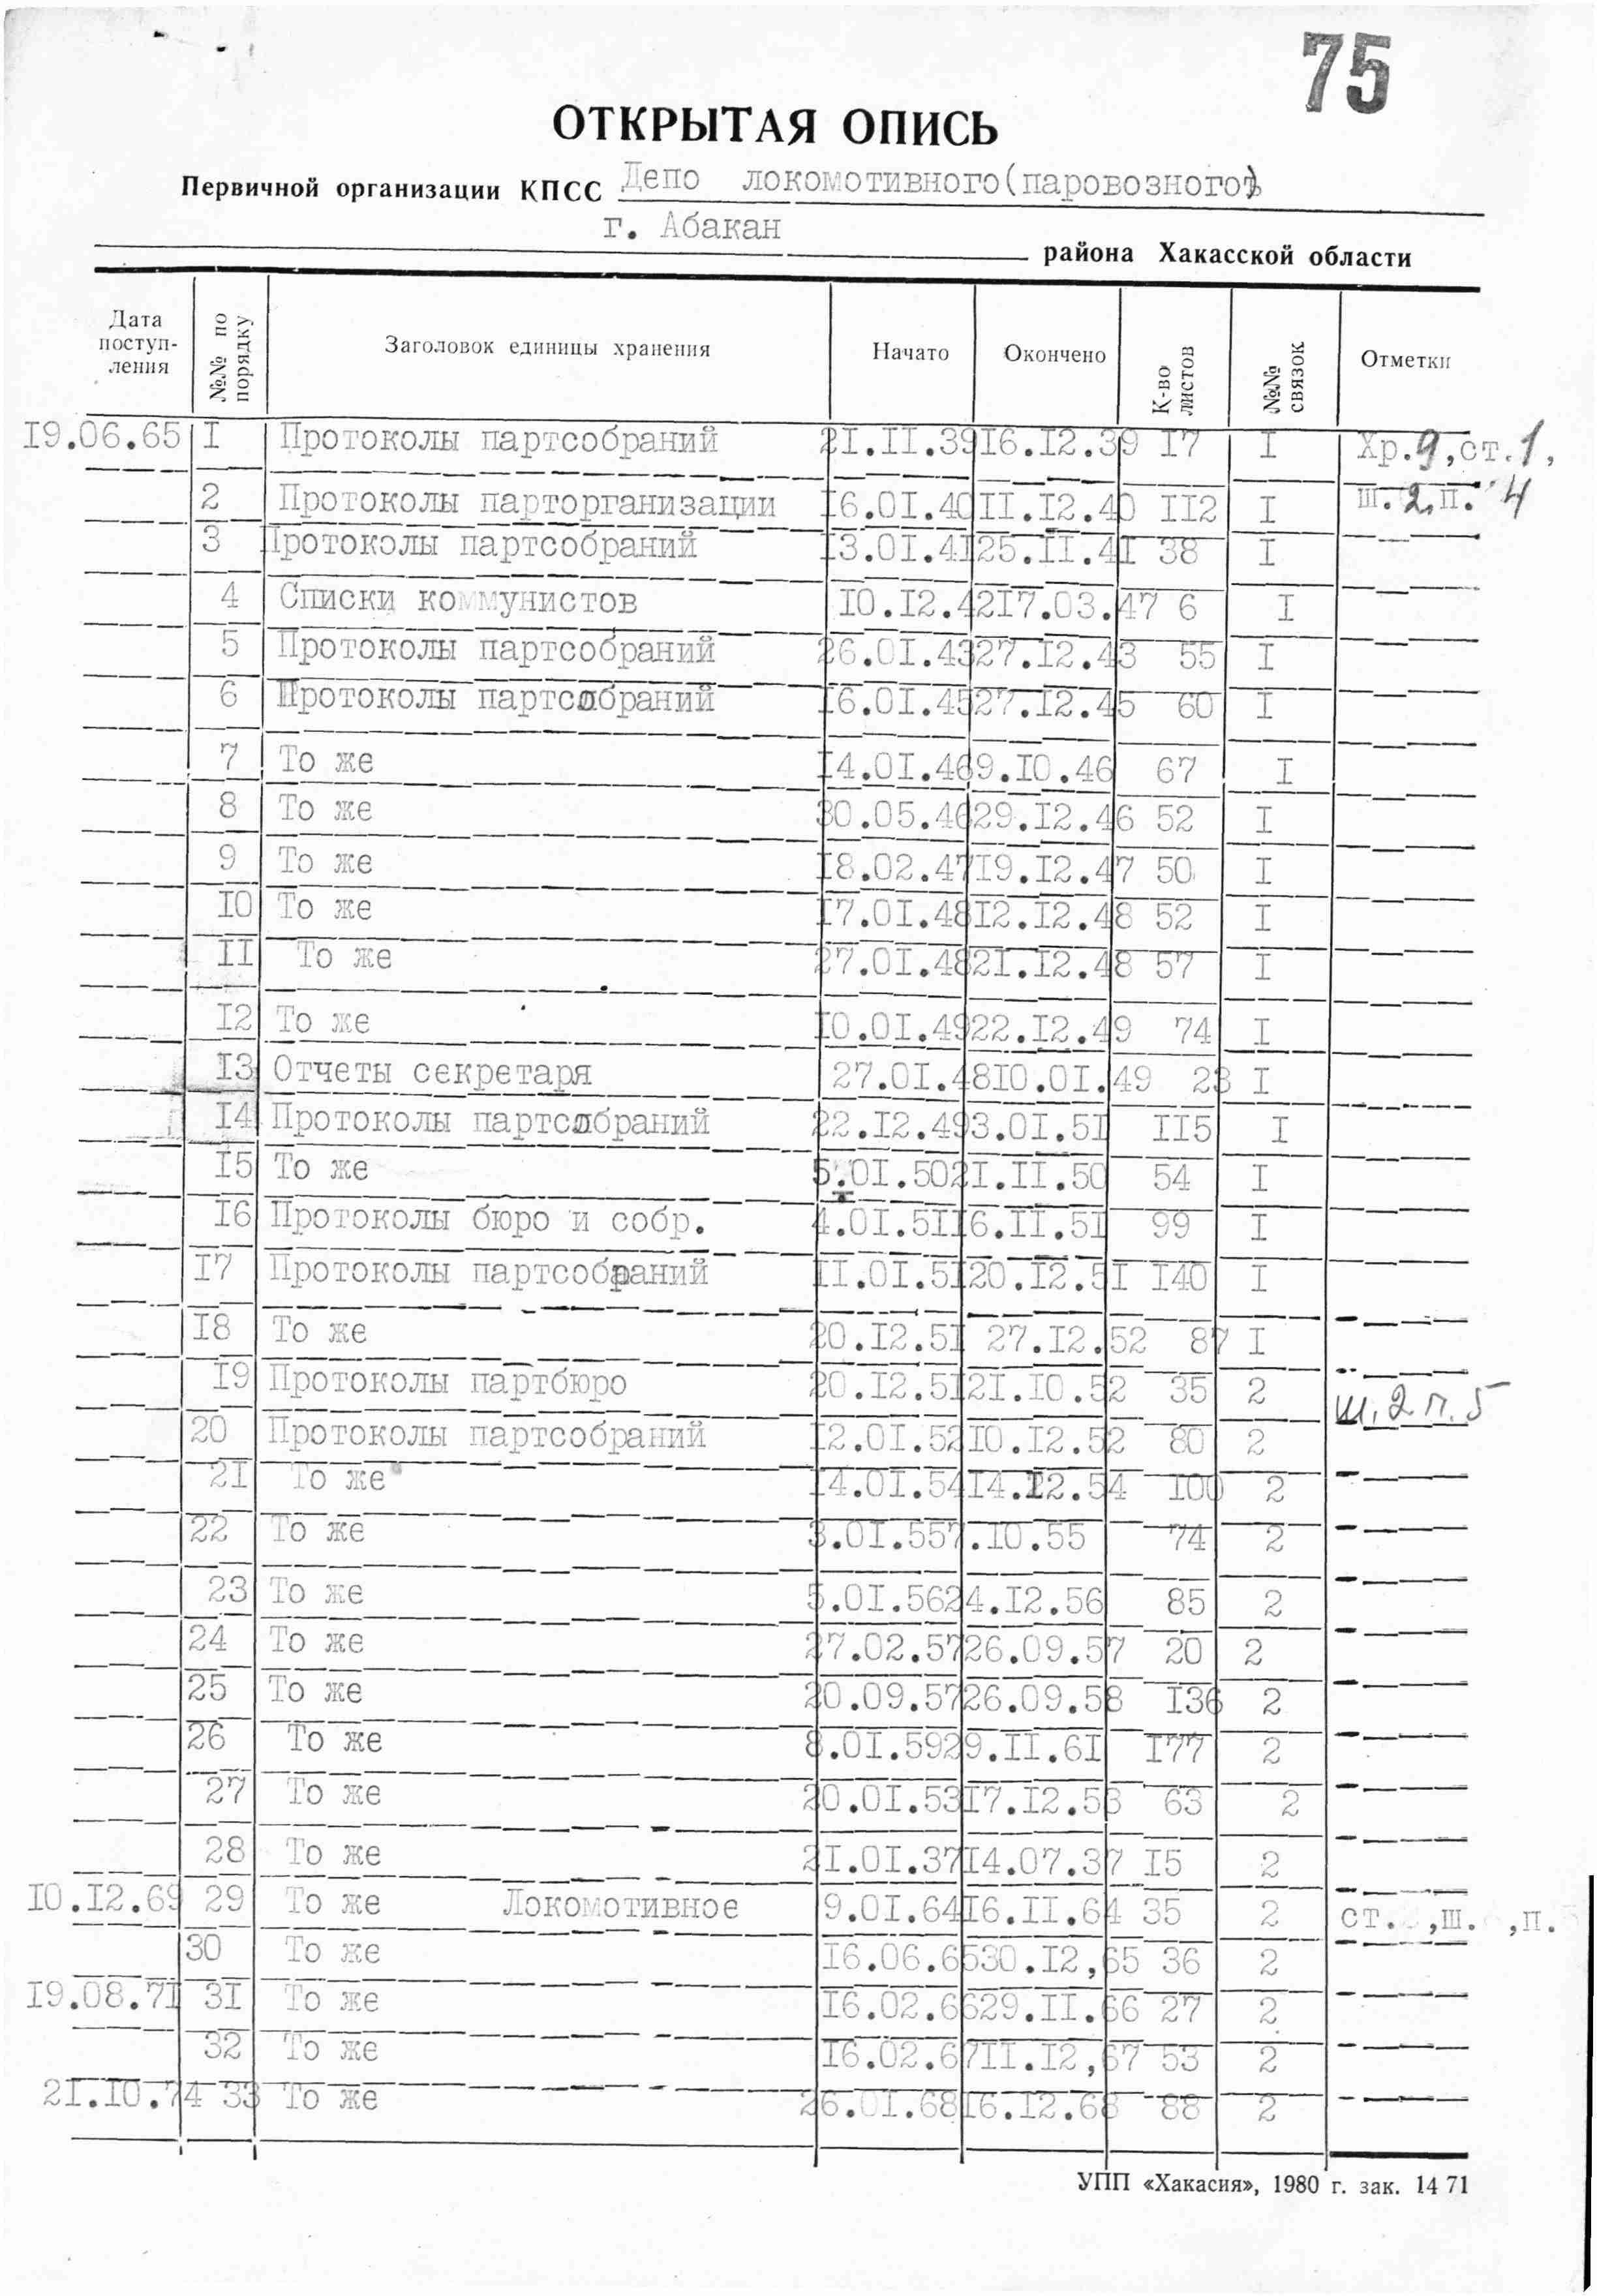 75
ОТКРЫТАЯ ОПИСЬ
Первичной организации КПСС Депо локомотивного(паровозного)
г. Абакан
района Хакасской области
Дата поступ- ления №№ по порядку Заголовок единицы хранения Начато Окончено К-во листов №№ связок Отметки
19.06.65 I Протоколы партсобраний 21.II.39 16.12.39 17 I Хр.9,ст.1,
2 Протоколы парторганизации 16.01.40 II.12.40 112 I ш.2,п. 4
3 Протоколы партсобраний 13.01.41 25.II.41 38 I
4 Списки коммунистов 10.12.42 17.03.47 6 I
5 Протоколы партсобраний 26.01.43 27.12.43 55 I
6 Протоколы партсобраний 16.01.45 27.12.45 60 I
7 То же 14.01.46 9.10.46 67 I
8 То же 30.05.46 29.12.46 52 I
9 То же 18.02.47 19.12.47 50 I
10 То же 17.01.48 12.12.48 52 I
II То же 27.01.48 21.12.48 57 I
12 То же 10.01.49 22.12.49 74 I
13 Отчеты секретаря 27.01.48 10.01.49 23 I
14 Протоколы партсобраний 22.12.49 3.01.51 115 I
15 То же 5.01.50 21.II.50 54 I
16 Протоколы бюро и собр. 4.01.51 16.II.51 99 I
17 Протоколы партсобраний II.01.51 20.12.51 140 I
18 То же 20.12.51 27.12.52 87 I
19 Протоколы партбюро 20.12.51 21.10.52 35 2 ш.2 п.5
20 Протоколы партсобраний 12.01.52 10.12.52 80 2
21 То же 14.01.54 14.12.54 100 2
22 То же 3.01.55 7.10.55 74 2
23 То же 5.01.56 24.12.56 85 2
24 То же 27.02.57 26.09.57 20 2
25 То же 20.09.57 26.09.58 136 2
26 То же 8.01.59 29.II.61 177 2
27 То же 20.01.53 17.12.53 63 2
28 То же 21.01.37 14.07.37 15 2
10.12.69 29 То же Локомотивное 9.01.64 16.II.64 35 2 ст. ,ш. ,п.
30 То же 16.06.65 30.12,65 36 2
19.08.71 31 То же 16.02.66 29.II.66 27 2
32 То же 16.02.67 II.12,67 53 2
21.10.74 33 То же 26.01.68 16.12.68 88 2
УПП «Хакасия», 1980 г. зак. 14 71